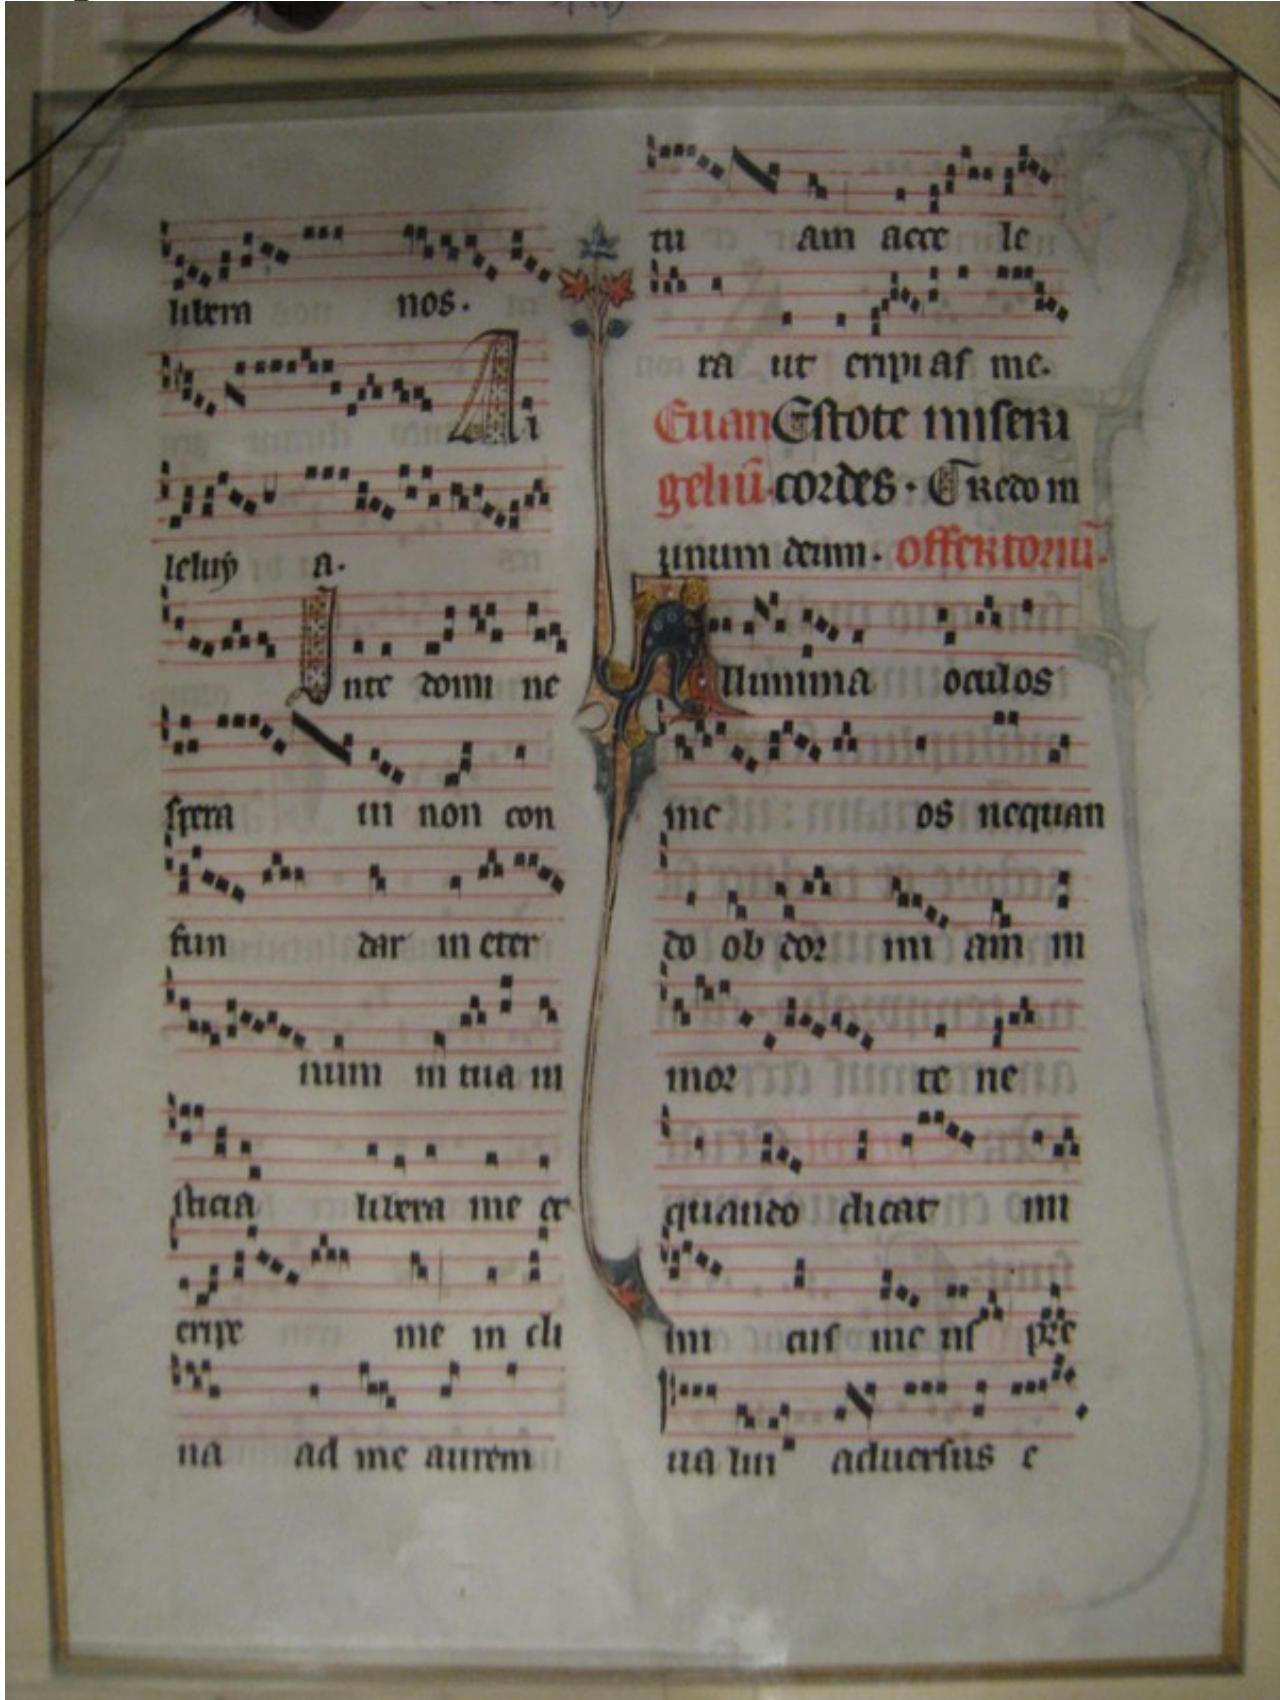 libera nos.
Al
leluÿ a.
Inte domi ne
spera ui non con
fun dar in eter
num in tua iu
sticia libera me et
eripe me in cli
na ad me aurem
tu am acce le
ra ut eripi as me.
Euan Estote miseri
geliū. cordes. Credo in
unum deum. offertoriū.
Illumina oculos
me os nequan
do ob dor mi am in
mor te ne
quando dicat ini
mi cus me us pre
ua lui aduersus e